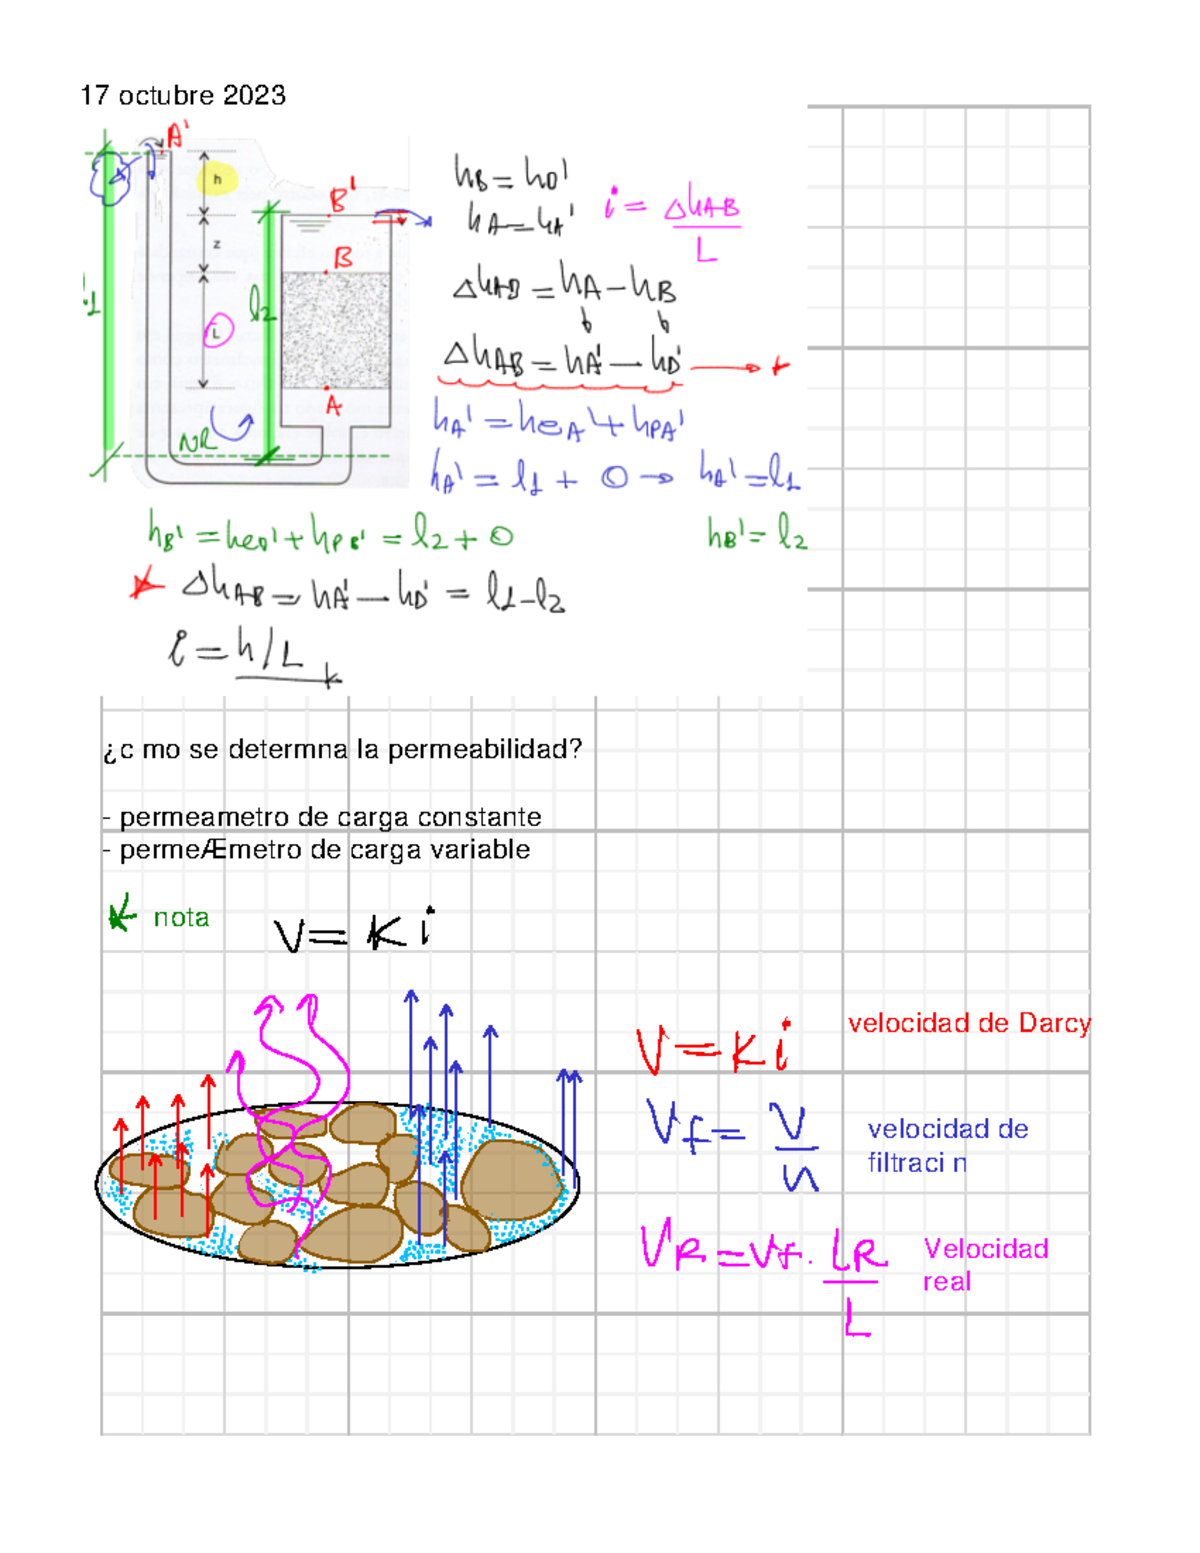 17 octubre 2023
A'
h
B'
z
B
l2
L
A
NR
hB = hB'
hA = hA'
i = ΔhAB / L
ΔhAB = hA - hB
ΔhAB = hA' - hB'
hA' = heA' + hpA'
hA' = l1 + 0 → hA' = l1
hB' = heB' + hpB' = l2 + 0 hB' = l2
ΔhAB = hA' - hB' = l1 - l2
i = h/L
¿c mo se determna la permeabilidad?
- permeametro de carga constante
- permeÆmetro de carga variable
nota
V = K i
V = K i velocidad de Darcy
Vf = V / n velocidad de
filtraci n
VR = Vf · LR / L Velocidad
real